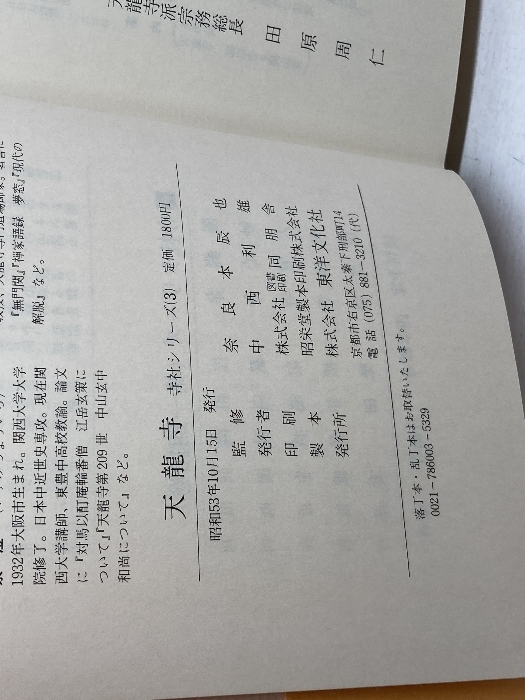 宗務総長
田原周仁
『無門関』『禅家語録　夢窓』『現代の
解脱』など。
1932年大阪市生まれ。関西大学大学
院修了。日本中近世史専攻。現在関
西大学講師、東豊中高校教諭。論文
に『対馬以酊庵輪番僧　江岳玄策に
ついて』『天龍寺第209世　中山玄中
和尚について』など。
天龍寺　寺社シリーズ(3)　定価　1800円
昭和53年10月15日　発行
監修　奈良本辰也
発行者　中西利雄
印刷　株式会社　図書印刷　同朋舎
製本　昭栄堂製本印刷株式会社
発行所　株式会社　東洋文化社
京都市右京区太秦下刑部町14
電話（075）881−3210（代）
落丁本・乱丁本はお取替いたします。
0021−786003−5329